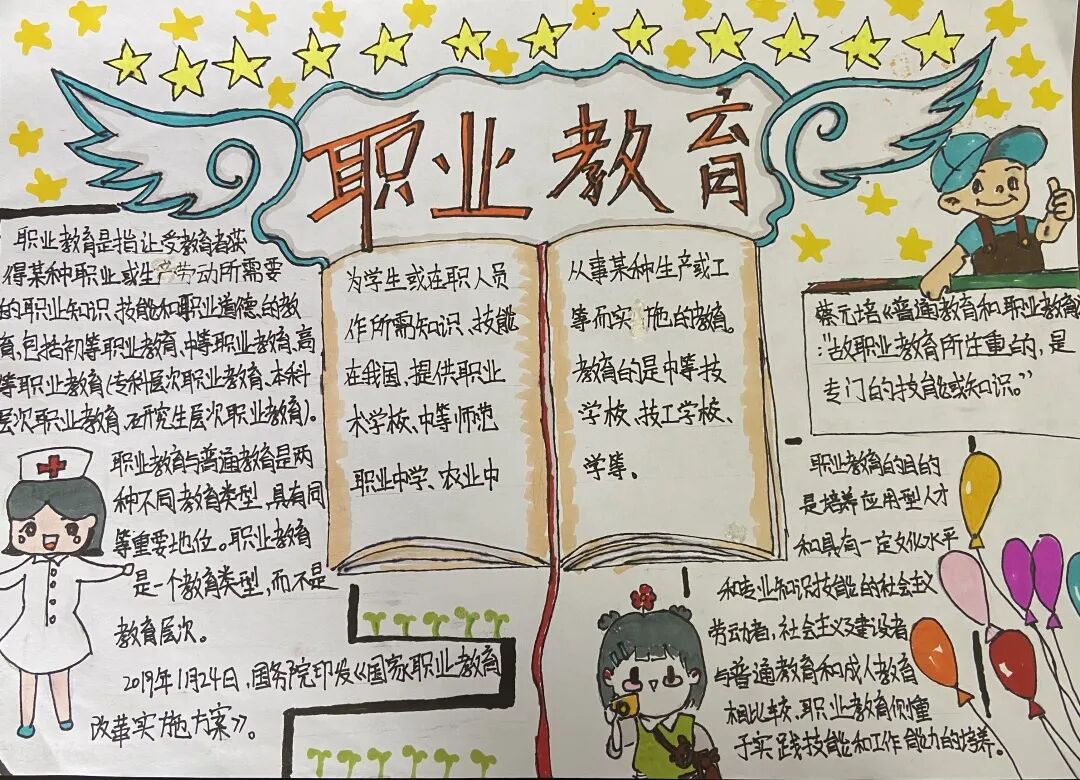 职业教育
职业教育是指让受教育者获
得某种职业或生产劳动所需要
的职业知识、技能和职业道德的教
育,包括初等职业教育、中等职业教育、高
等职业教育(专科层次职业教育、本科
层次职业教育、研究生层次职业教育)。
职业教育与普通教育是两
种不同教育类型,具有同
等重要地位。职业教育
是一个教育类型,而不是
教育层次。
2019年1月24日,国务院印发《国家职业教育
改革实施方案》。
为学生或在职人员
作所需知识、技能
在我国、提供职业
术学校、中等师范
职业中学、农业中
从事某种生产或工
等而实施的教育。
教育的是中等技
学校、技工学校、
学等。
蔡元培《普通教育和职业教育》
:“故职业教育所注重的,是
专门的技能或知识。”
职业教育的目的
是培养应用型人才
和具有一定文化水平
和专业知识技能的社会主义
劳动者,社会主义建设者
与普通教育和成人教育
相比较、职业教育侧重
于实践技能和工作能力的培养。